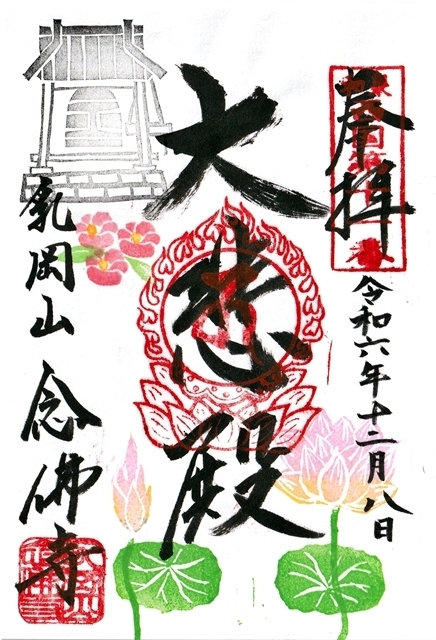 奉拝
令和六年十二月八日
大悲殿
乳岡山 念佛寺